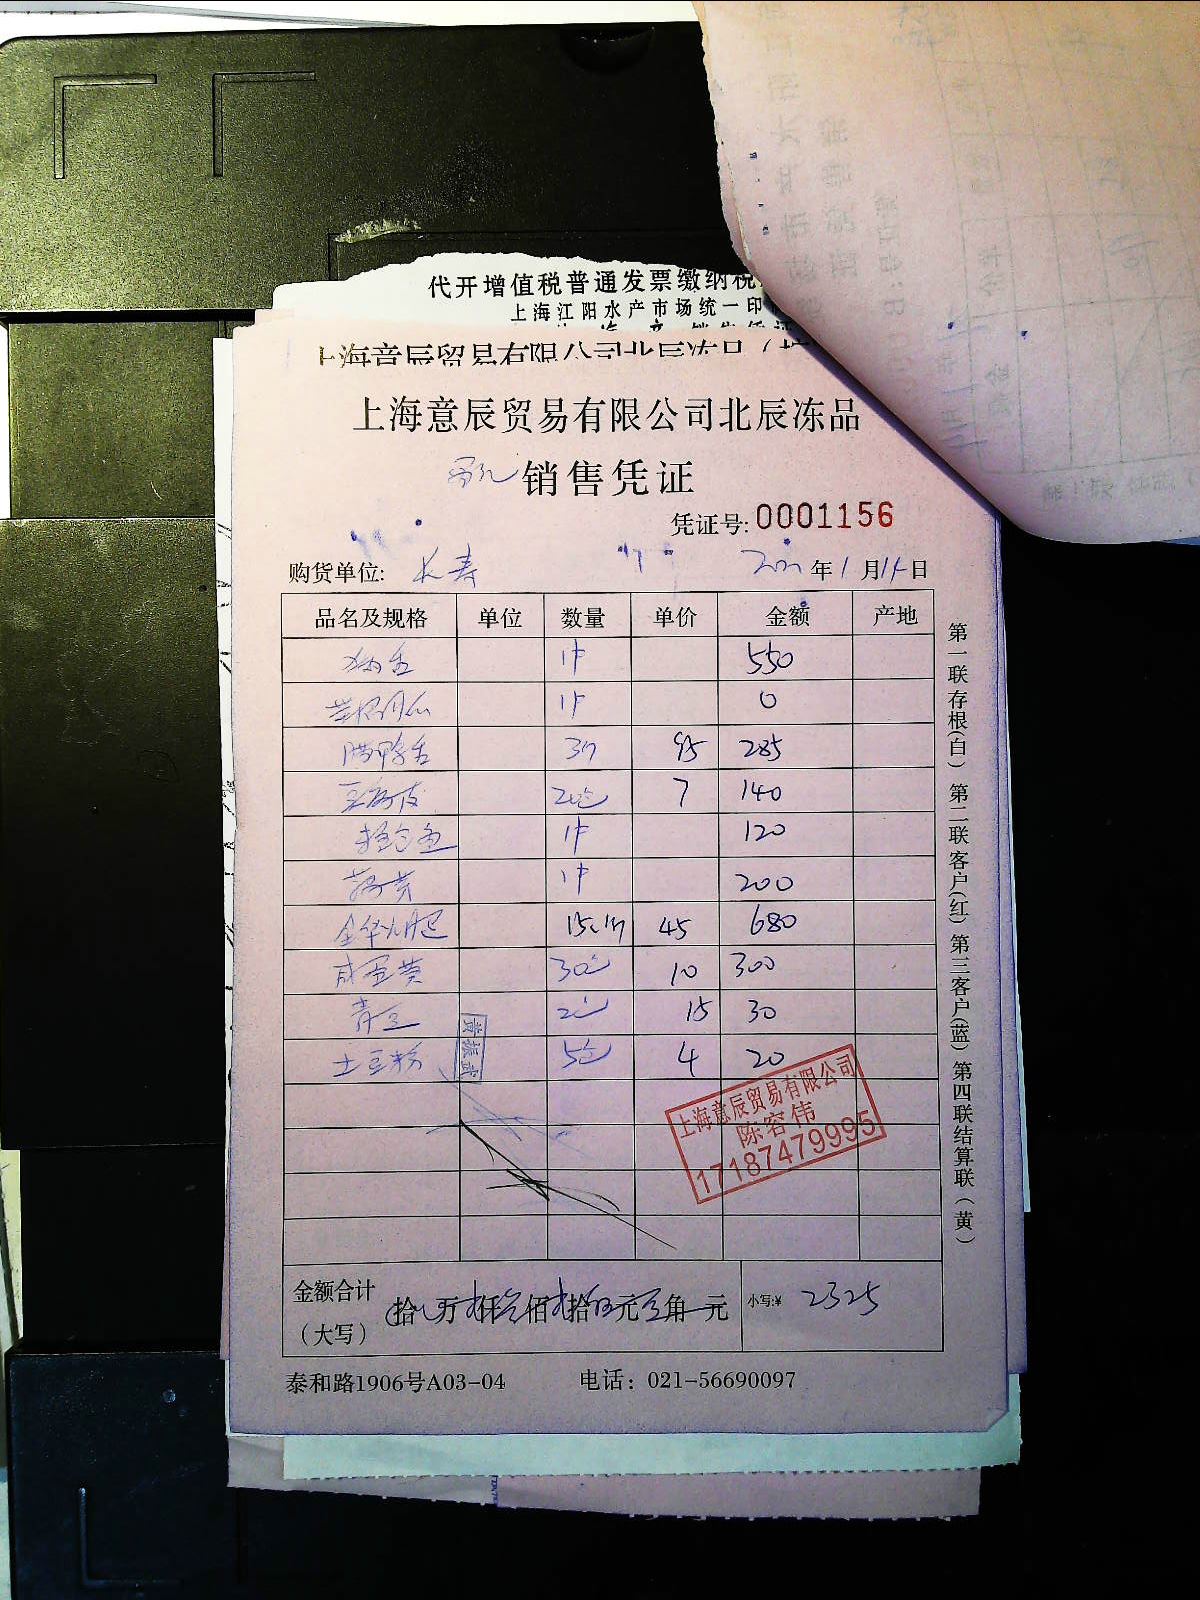 代开增值税普通发票缴纳税
上海江阳水产市场统一印
上海意辰贸易有限公司北辰冻品
销售凭证
凭证号: 0001156
购货单位: 长寿 年1月11日
品名及规格 单位 数量 单价 金额 产地
1件 550
1件 0
腊鸭舌 3斤 95 285
豆腐皮 20包 7 140
1件 120
1件 200
金华火腿 15.1斤 45 680
咸蛋黄 30包 10 300
青豆 2包 15 30
土豆粉 5包 4 20
黄振武
上海意辰贸易有限公司
陈容伟
17187479995
金额合计(大写) 拾 万 仟 佰 拾 元 角 元 小写:¥ 2325
泰和路1906号A03-04 电话：021-56690097
第一联存根(白) 第二联客户(红) 第三客户(蓝) 第四联结算联(黄)